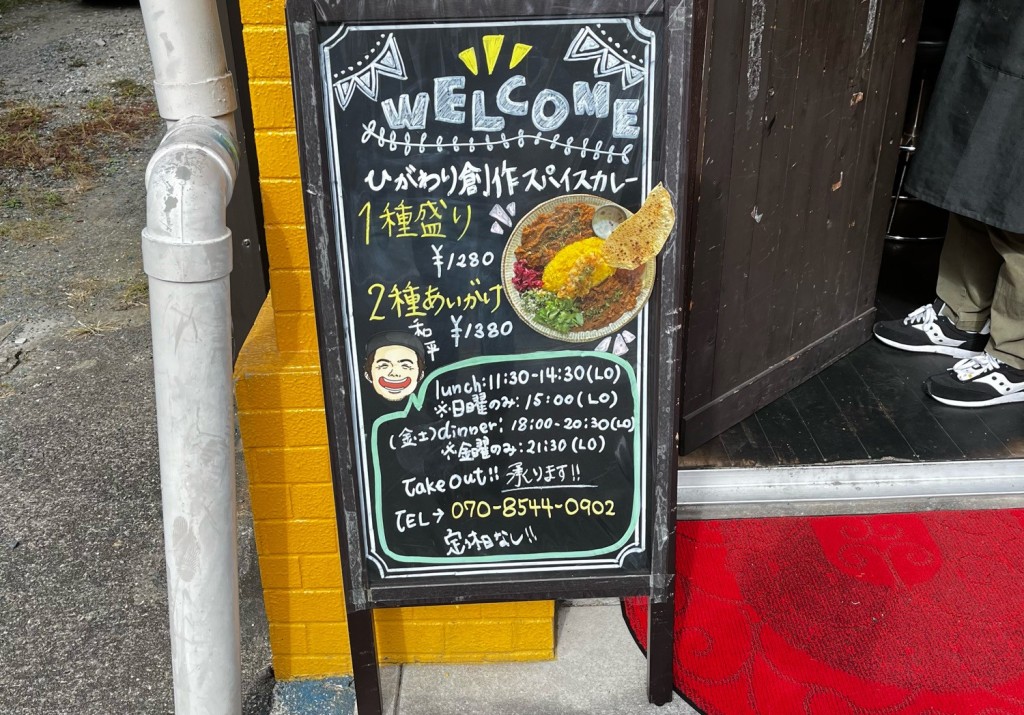 WELCOME
ひがわり創作スパイスカレー
1種盛り
¥1280
2種あいがけ
¥1380
和平
lunch:11:30-14:30(LO)
※日曜のみ:15:00(LO)
(金・土)dinner:18:00-20:30(LO)
※金曜のみ:21:30(LO)
Take out!! 承ります!!
TEL→070-8544-0902
定休日なし!!